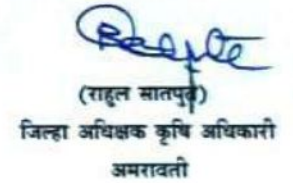 (राहुल सातपुते)
जिल्हा अधिक्षक कृषि अधिकारी
अमरावती